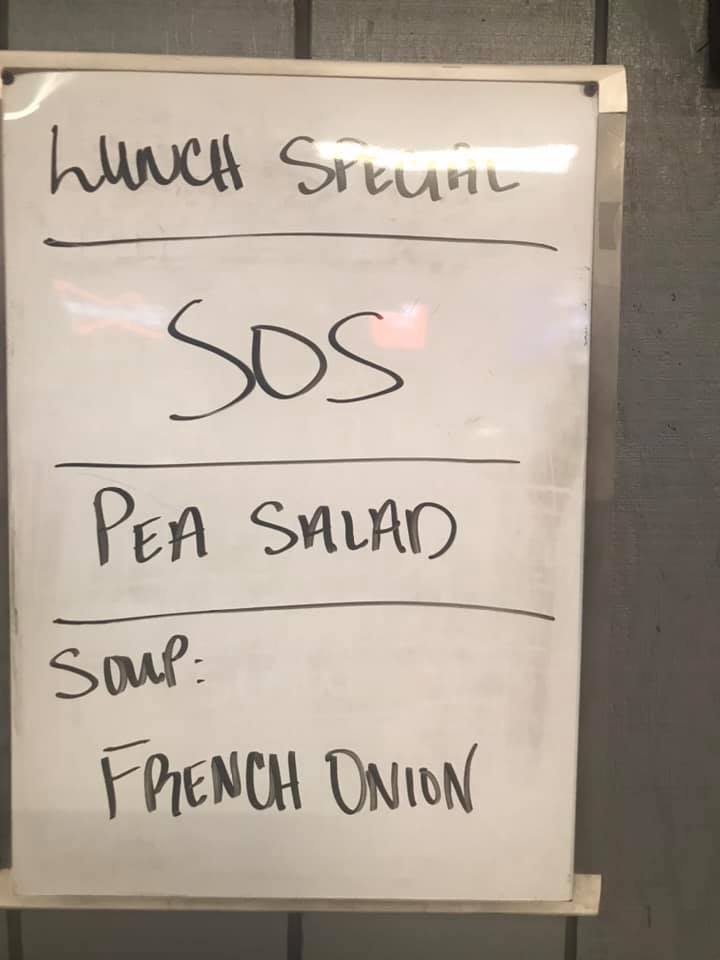 LUNCH SPECIAL
SOS
PEA SALAD
SOUP:
FRENCH ONION